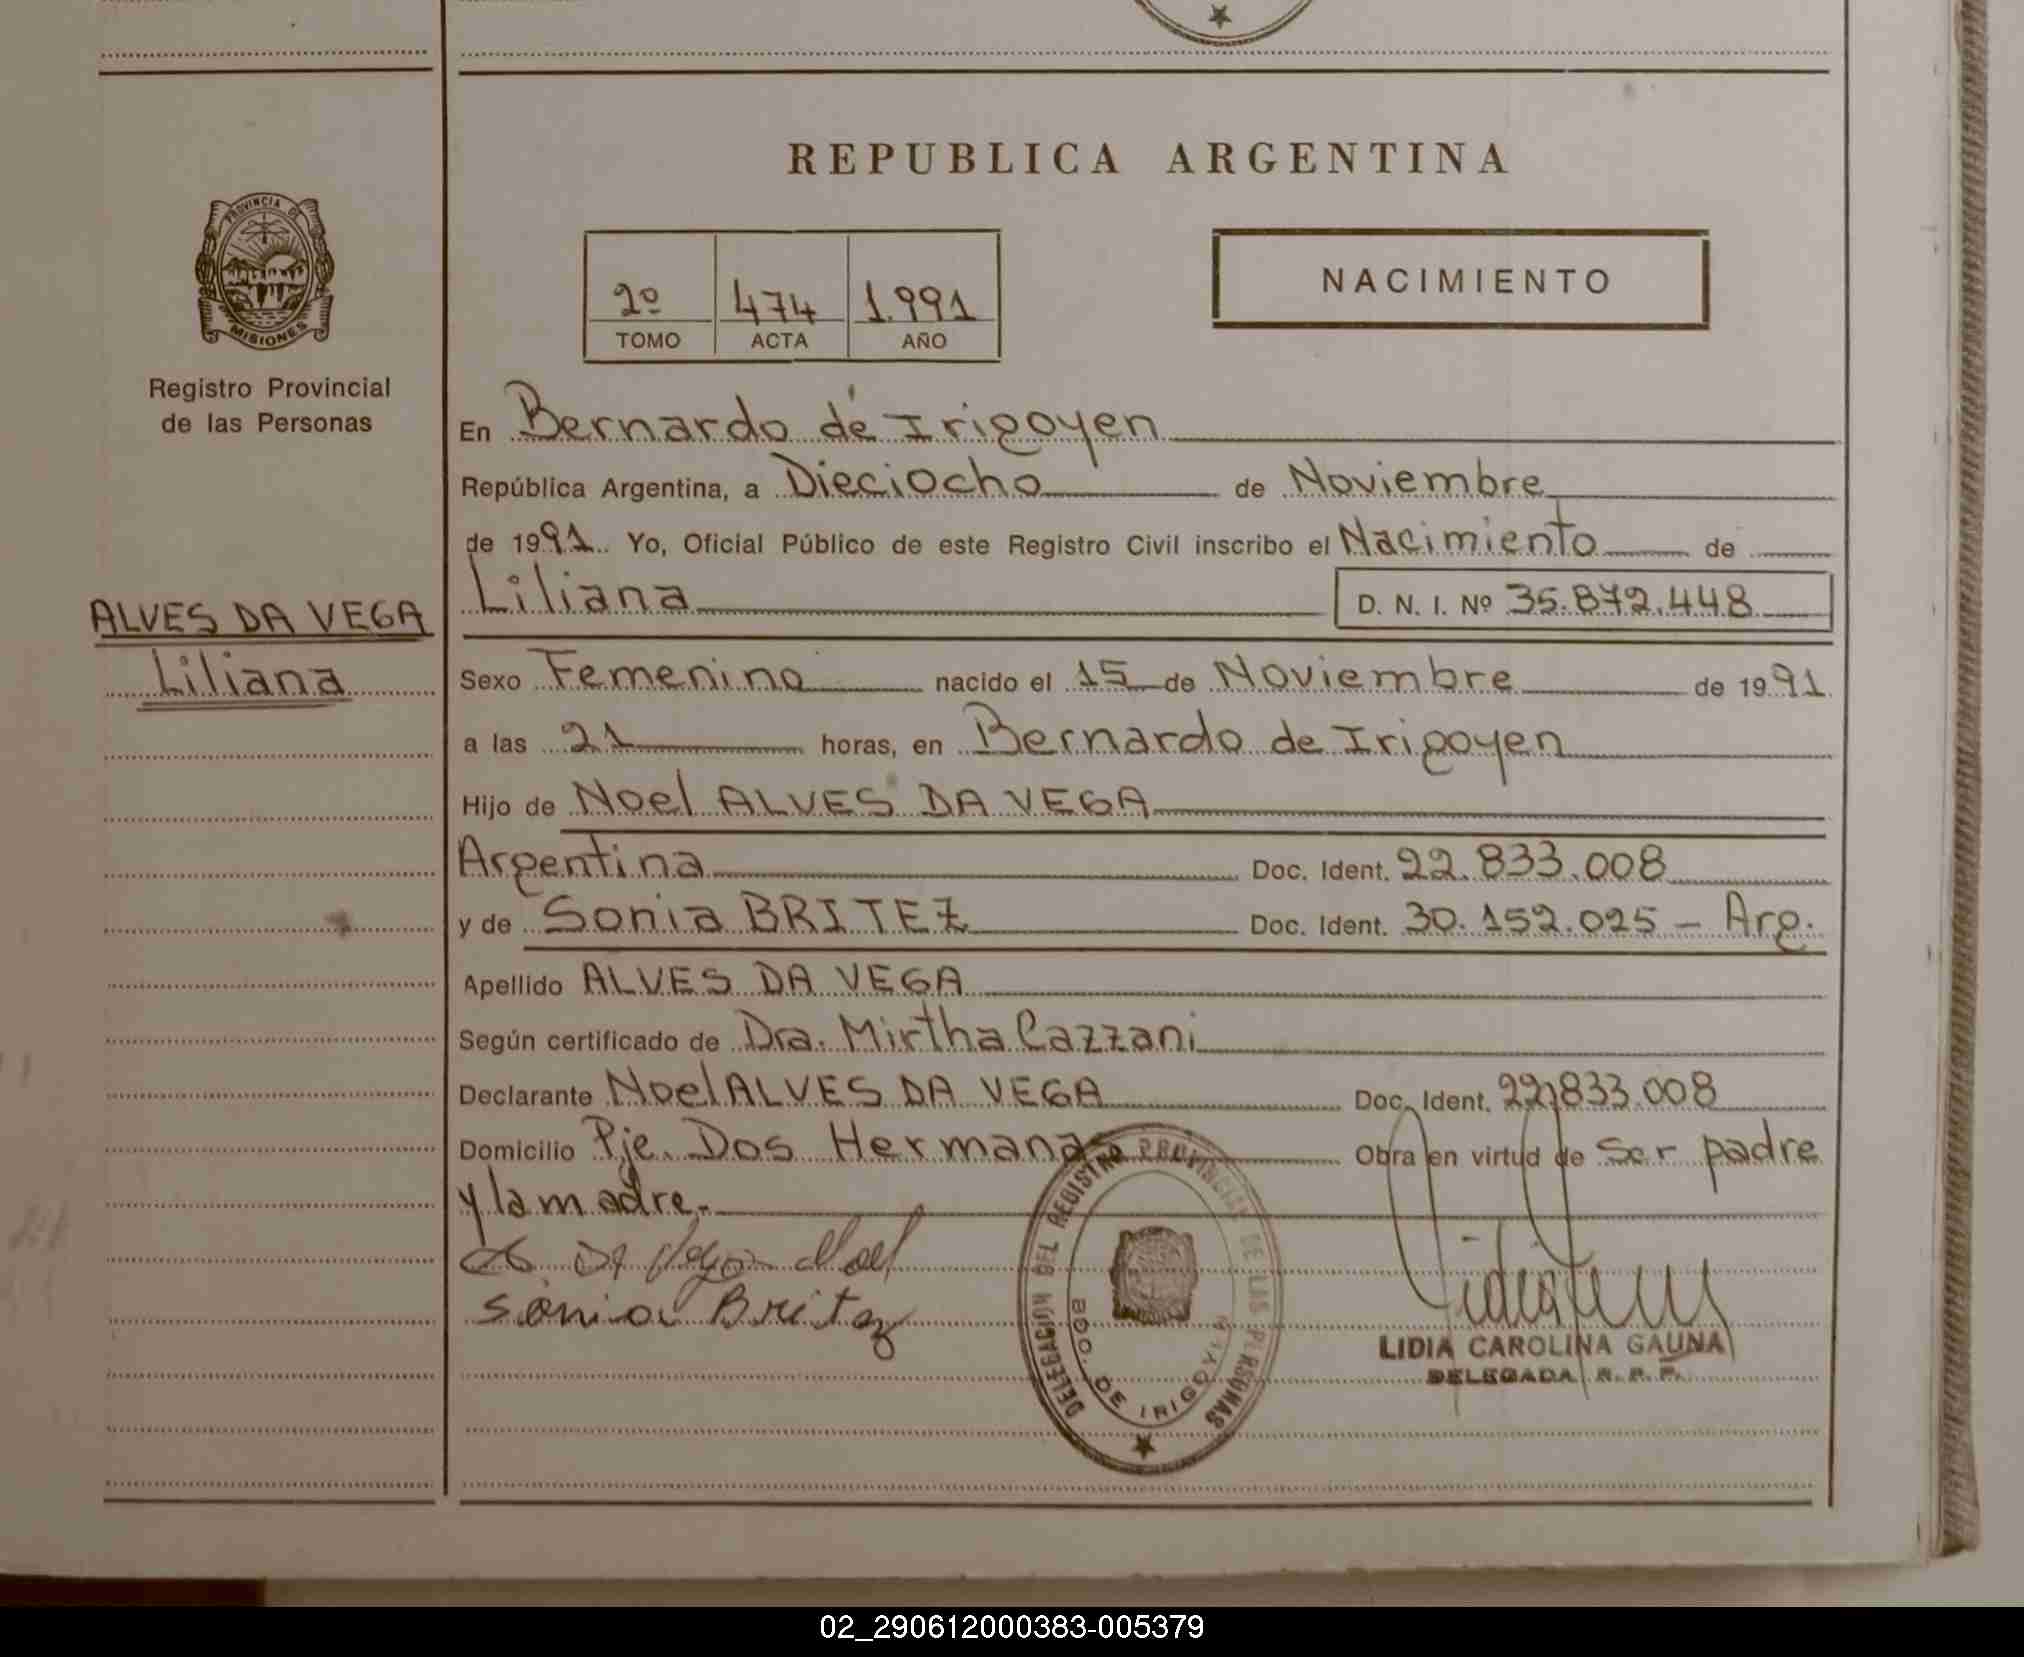 REPUBLICA ARGENTINA
PROVINCIA DE
MISIONES
Registro Provincial
de las Personas
2º 474 1.991
TOMO ACTA AÑO
NACIMIENTO
En Bernardo de Irigoyen
República Argentina, a Dieciocho de Noviembre
de 1991. Yo, Oficial Público de este Registro Civil inscribo el Nacimiento de
Liliana D. N. I. Nº 35.872.448
ALVES DA VEGA
Liliana
Sexo Femenino nacido el 15 de Noviembre de 1991
a las 21 horas, en Bernardo de Irigoyen
Hijo de Noel ALVES DA VEGA
Argentina Doc. Ident. 22.833.008
y de Sonia BRITEZ Doc. Ident. 30.152.025 - Arg.
Apellido ALVES DA VEGA
Según certificado de Dra. Mirtha Cazzani
Declarante Noel ALVES DA VEGA Doc. Ident. 22.833.008
Domicilio Pje. Dos Hermanas Obra en virtud de ser padre
y la madre.-
Sonia Britez
DELEGACIÓN DEL REGISTRO PROVINCIAL DE LAS PERSONAS
BDO. DE IRIGOYEN
LIDIA CAROLINA GAUNA
DELEGADA R. P. P.
02_290612000383-005379